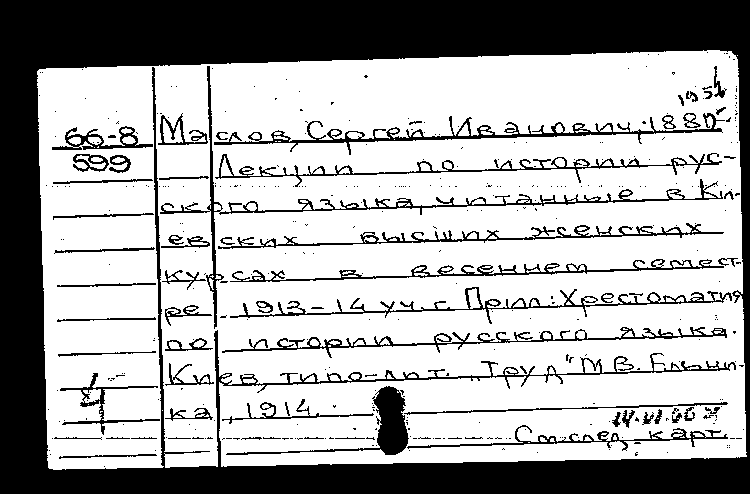 1957
66-8 Маслов, Сергей Иванович, 1880-
599 Лекции по истории рус-
ского языка, читанные в Ки-
евских высших женских
курсах в весеннем семест-
ре 1913-14 уч. г. Прил.: Хрестоматия
по истории русского языка.
Киев, типо-лит. "Труд" М.В.
ка, 1914.
4
14.VI.66
См. след. карт.